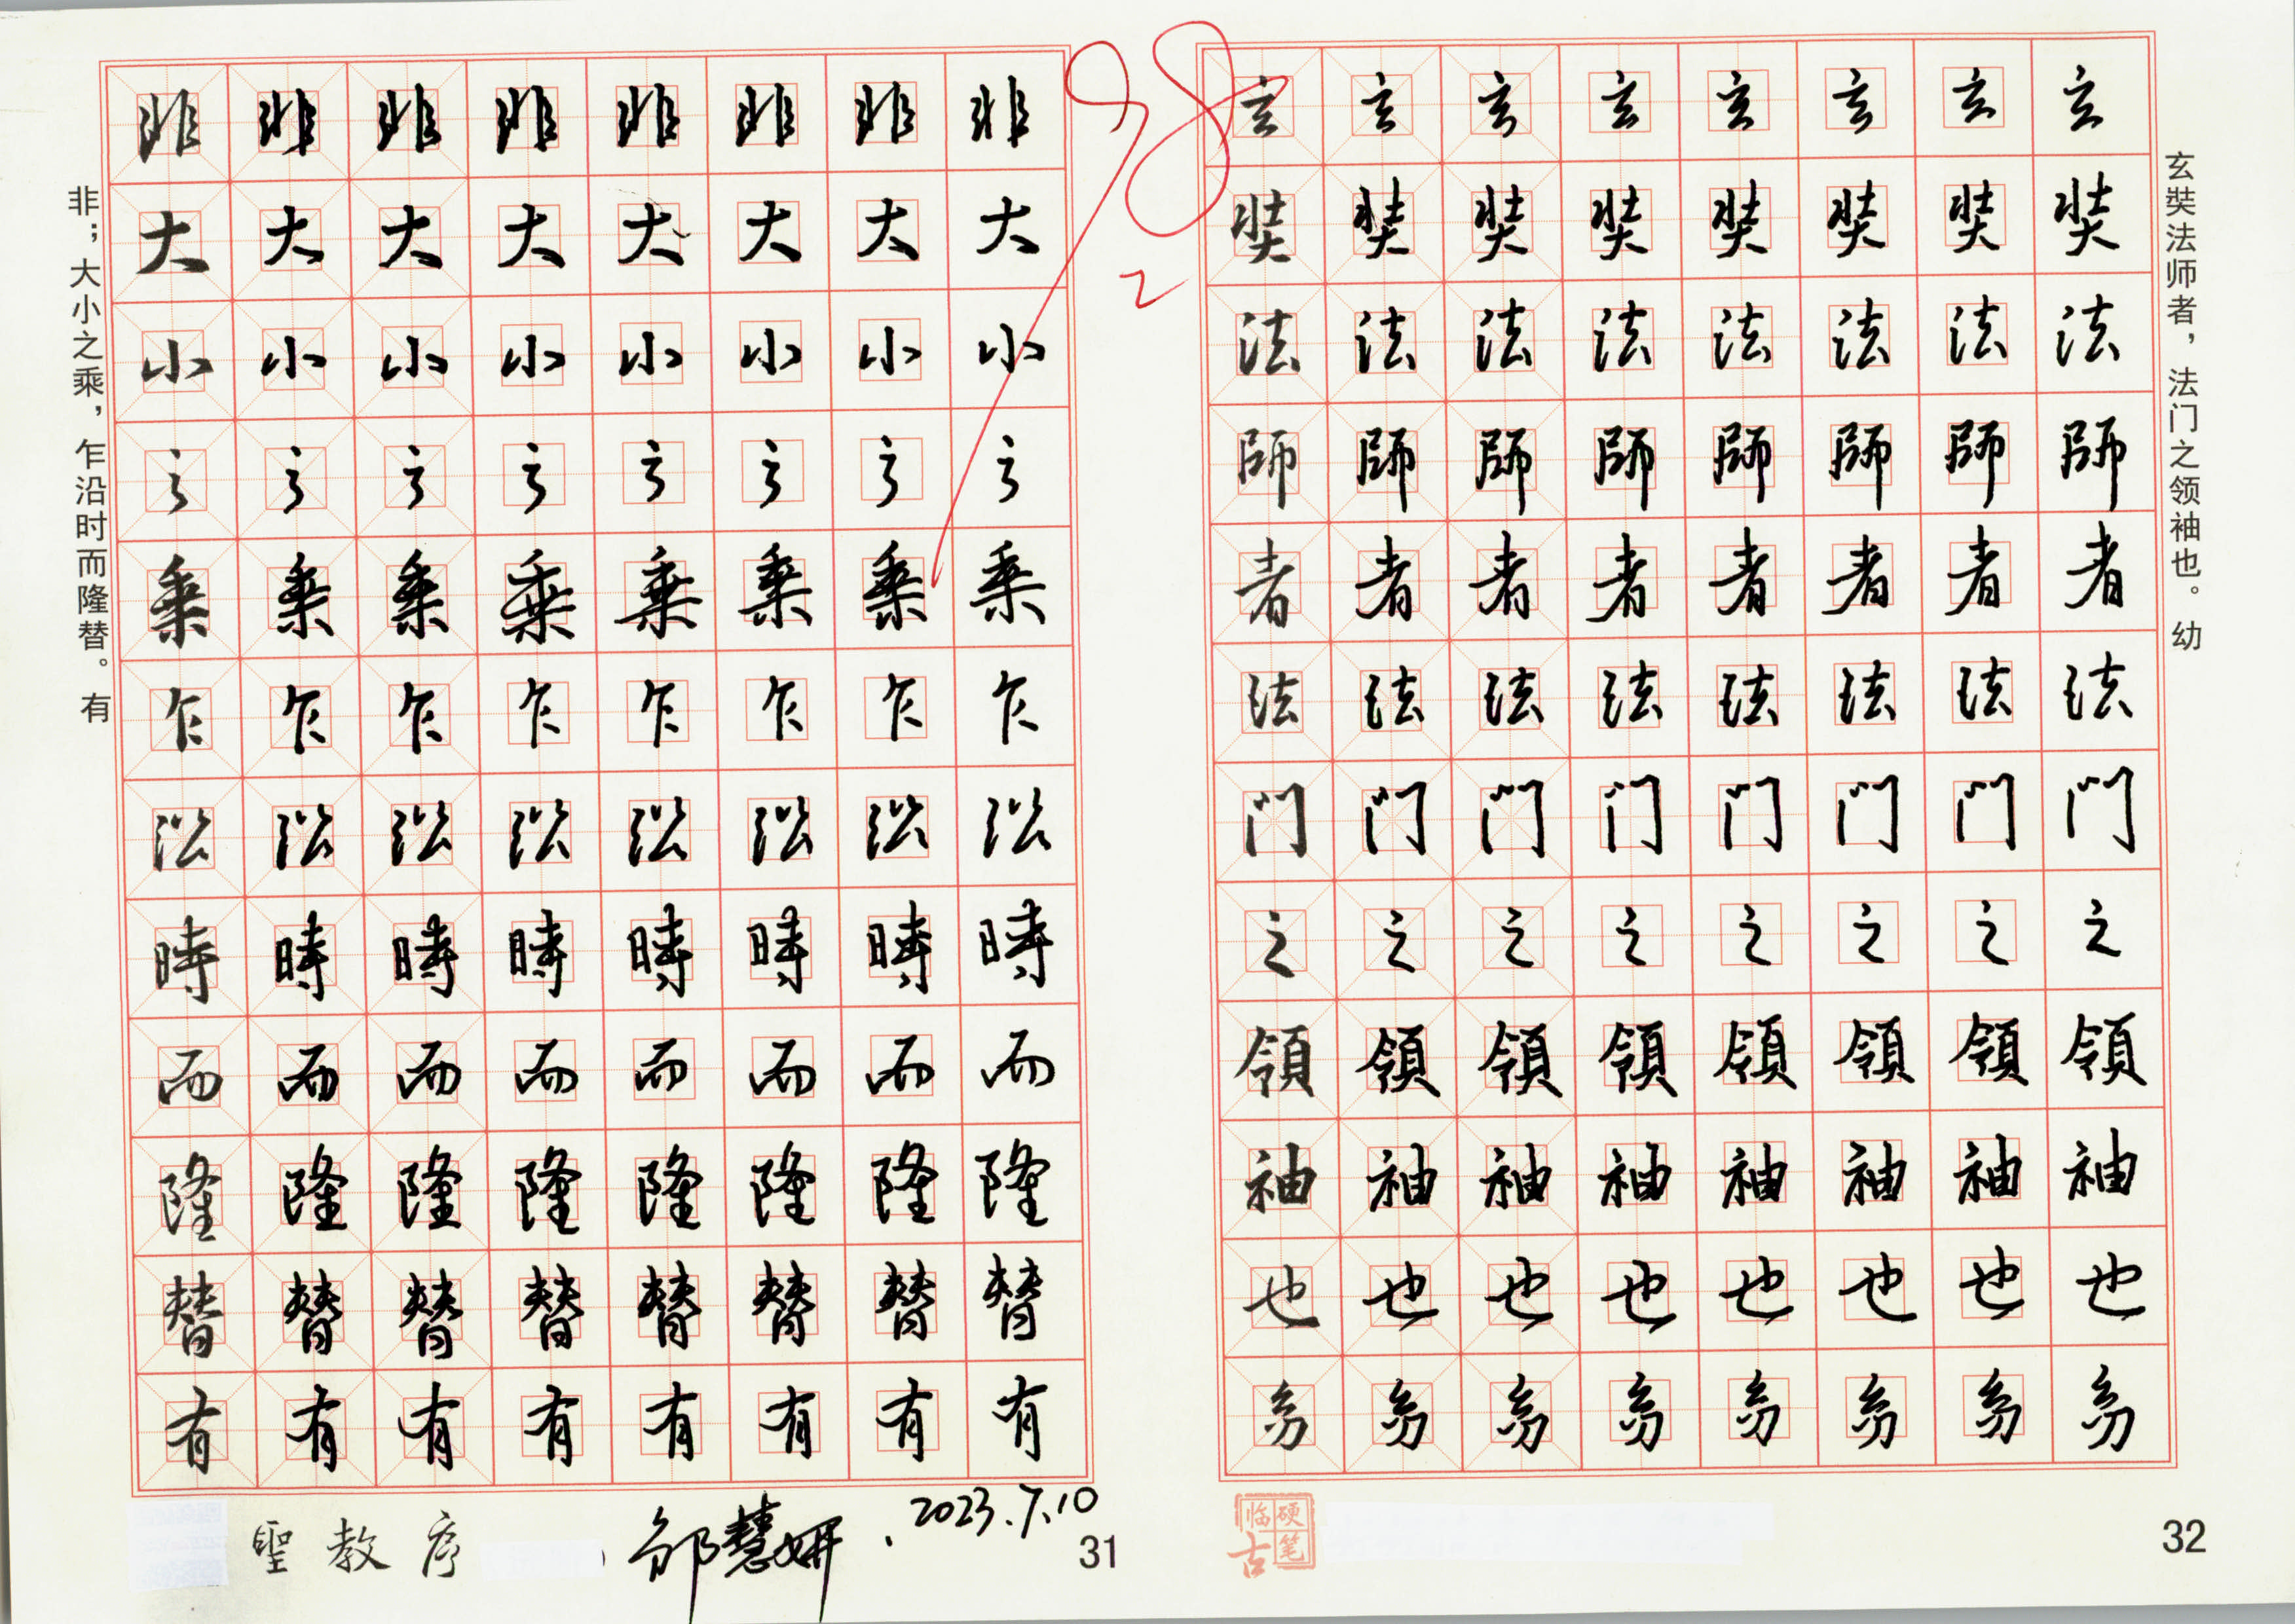 非；大小之乘，乍沿时而隆替。有
非 非 非 非 非 非 非 非
大 大 大 大 大 大 大 大
小 小 小 小 小 小 小 小
之 之 之 之 之 之 之 之
乘 乘 乘 乘 乘 乘 乘 乘
乍 乍 乍 乍 乍 乍 乍 乍
沿 沿 沿 沿 沿 沿 沿 沿
時 時 時 時 時 時 時 時
而 而 而 而 而 而 而 而
隆 隆 隆 隆 隆 隆 隆 隆
替 替 替 替 替 替 替 替
有 有 有 有 有 有 有 有
聖教序
邹慧妍.2023.7.10
31
98
2
玄 玄 玄 玄 玄 玄 玄 玄
奘 奘 奘 奘 奘 奘 奘 奘
法 法 法 法 法 法 法 法
師 師 師 師 師 師 師 師
者 者 者 者 者 者 者 者
法 法 法 法 法 法 法 法
门 门 门 门 门 门 门 门
之 之 之 之 之 之 之 之
領 領 領 領 領 領 領 領
袖 袖 袖 袖 袖 袖 袖 袖
也 也 也 也 也 也 也 也
幼 幼 幼 幼 幼 幼 幼 幼
玄奘法师者，法门之领袖也。幼
硬笔临古
32